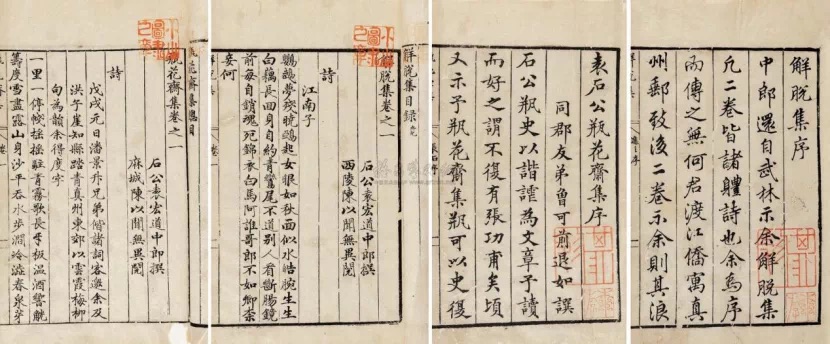 解脫集序
中郎還自武林示余解脫集
凡二卷皆諸體詩也余為序
而傳之無何君渡江僑寓真
州郵致後二卷示余則其浪
袁石公瓶花齋集序
同郡友弟魯可前退如譔
石公瓶史以諧謔為文章予讀
而好之謂不復有張功甫矣頃
又示予瓶花齋集瓶可以史復
解脫集目錄
解脫集卷之一
石公袁宏道中郎撰
西陵陳以聞無異閱
詩
江南子
鸚鵡夢殘曉鴉起女眼如秋面似水皓腕生生
白藕長回身自約青鸞尾不道別人看斷腸鏡
前每自銷魂死錦衣白馬阿誰哥郎不如卿奈
妾何
花齋集總目
瓶花齋集卷之一
石公袁宏道中郎撰
麻城陳以聞無異閱
詩
戊戌元日潘景升兄弟偕諸詞客邀余及
洪子崖知縣踏青真州東郊以雲霞梅柳
句為韻余得度字
一里一停幰搖搖駐青霧歌長板溫酒響觥
籌度雪盡露山身沙平吞水步澗冷滋春泉芽